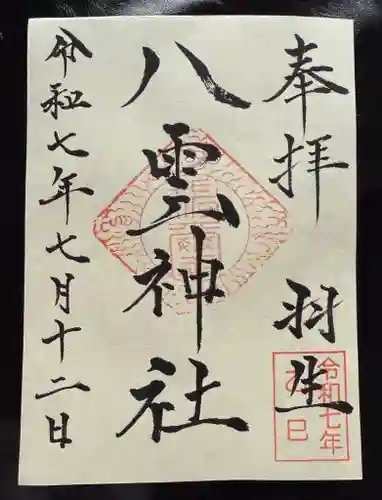 奉拝 羽生
八雲神社
令和七年七月十二日
令和七年
巳